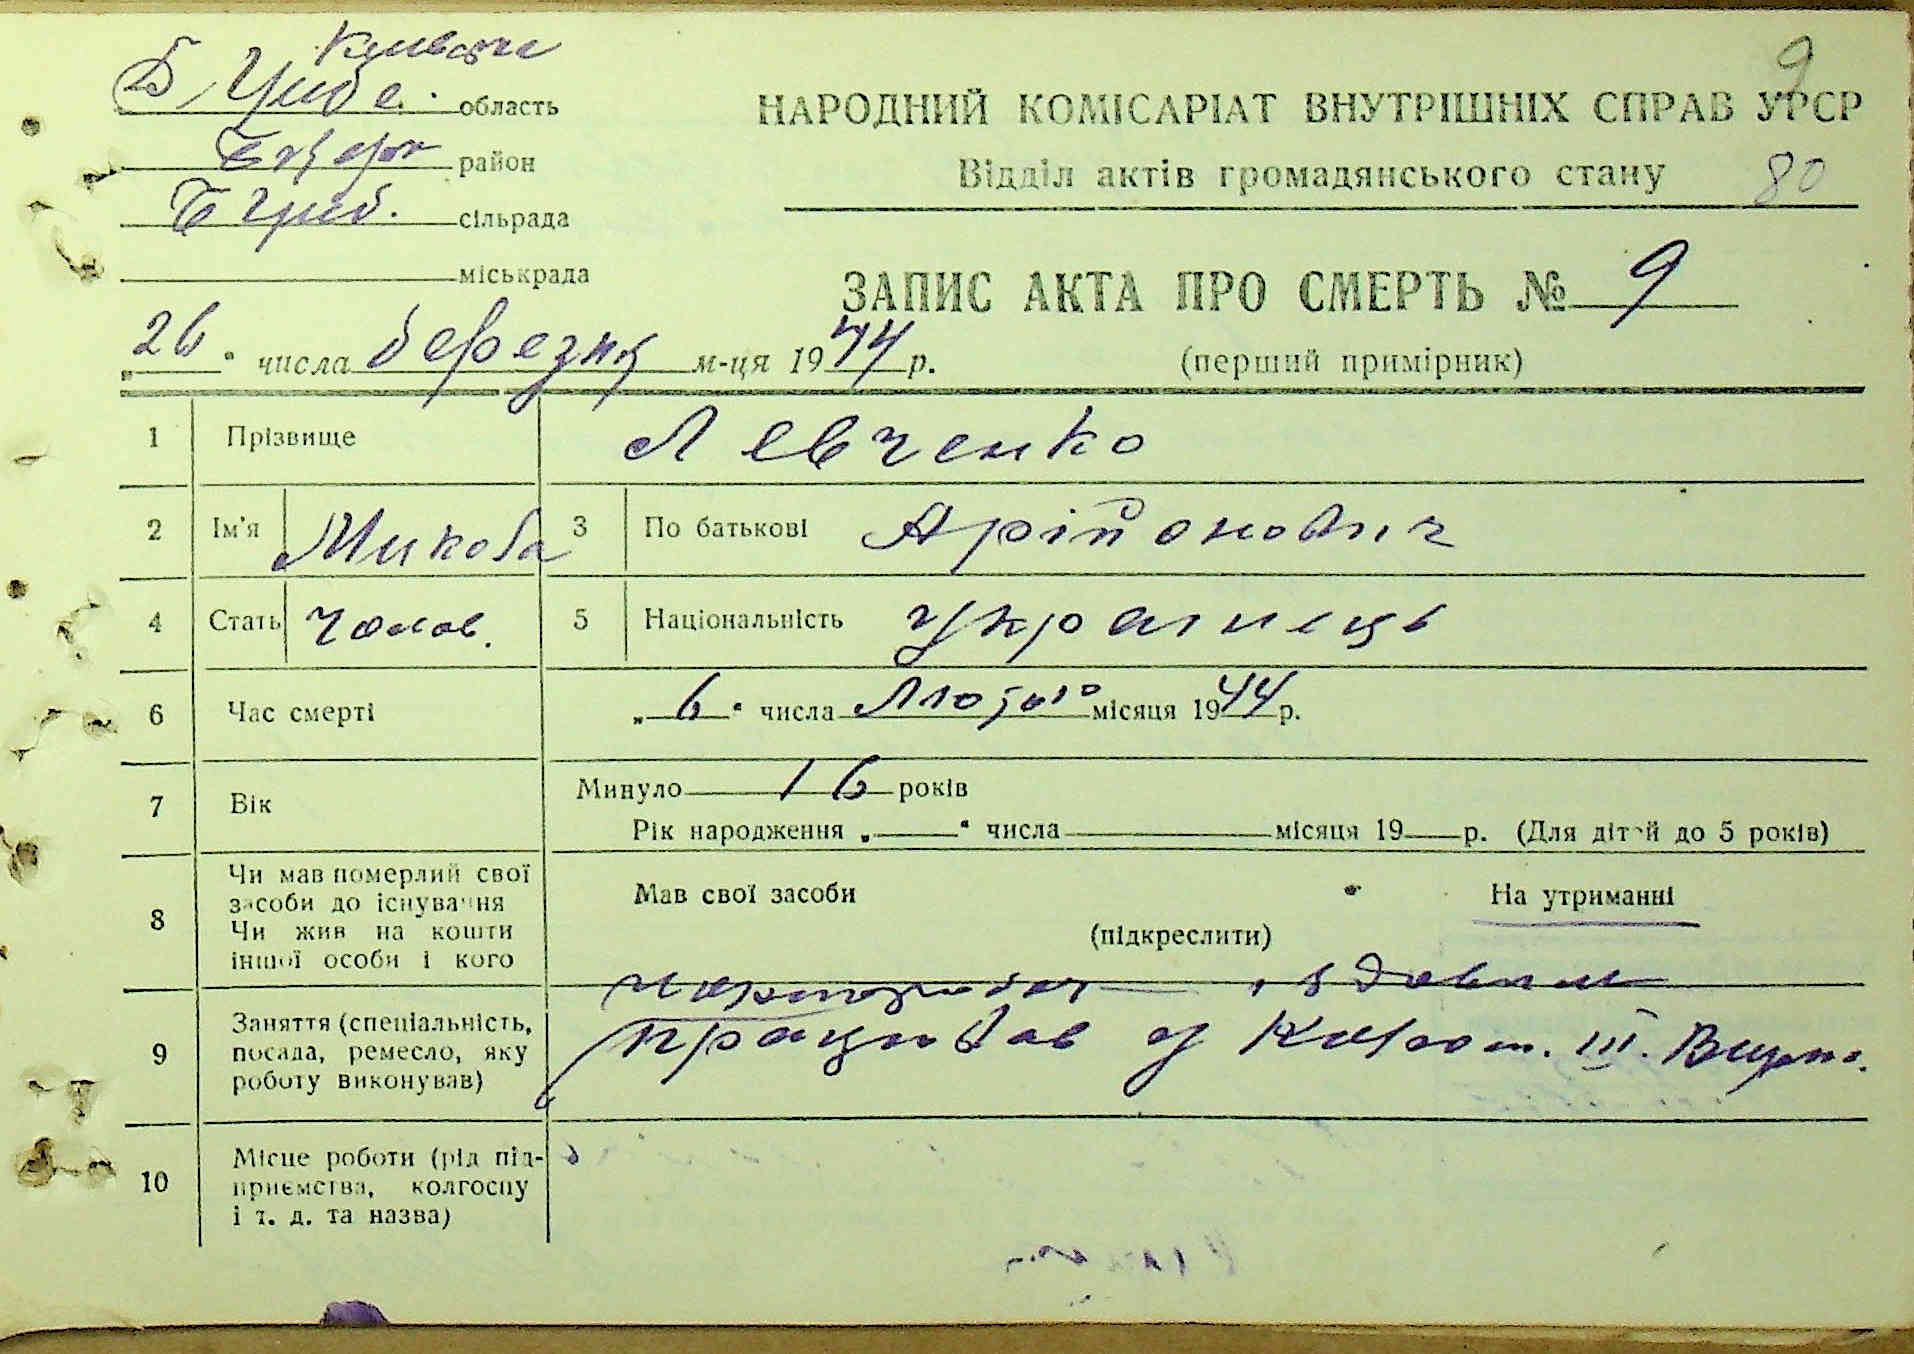 9
Київська
Б. Циб. область
район
Б Циб. сільрада
міськрада
НАРОДНИЙ КОМІСАРІАТ ВНУТРІШНІХ СПРАВ УРСР
Відділ актів громадянського стану 80
ЗАПИС АКТА ПРО СМЕРТЬ № 9
„26“ числа березня м-ця 1944 р.
(перший примірник)
1 Прізвище Левченко
2 Ім'я Микола 3 По батькові
4 Стать Чолов. 5 Національність українець
6 Час смерті „6“ числа Лютого місяця 1944 р.
7 Вік Минуло 16 років
Рік народження „ “ числа місяця 19 р. (Для дітей до 5 років)
8 Чи мав померлий свої засоби до існування
Чи жив на кошти іншої особи і кого
Мав свої засоби На утриманні
(підкреслити)
9 Заняття (спеціальність, посада, ремесло, яку роботу виконував)
працював у
10 Місце роботи (рід підприємства, колгоспу і т. д. та назва)